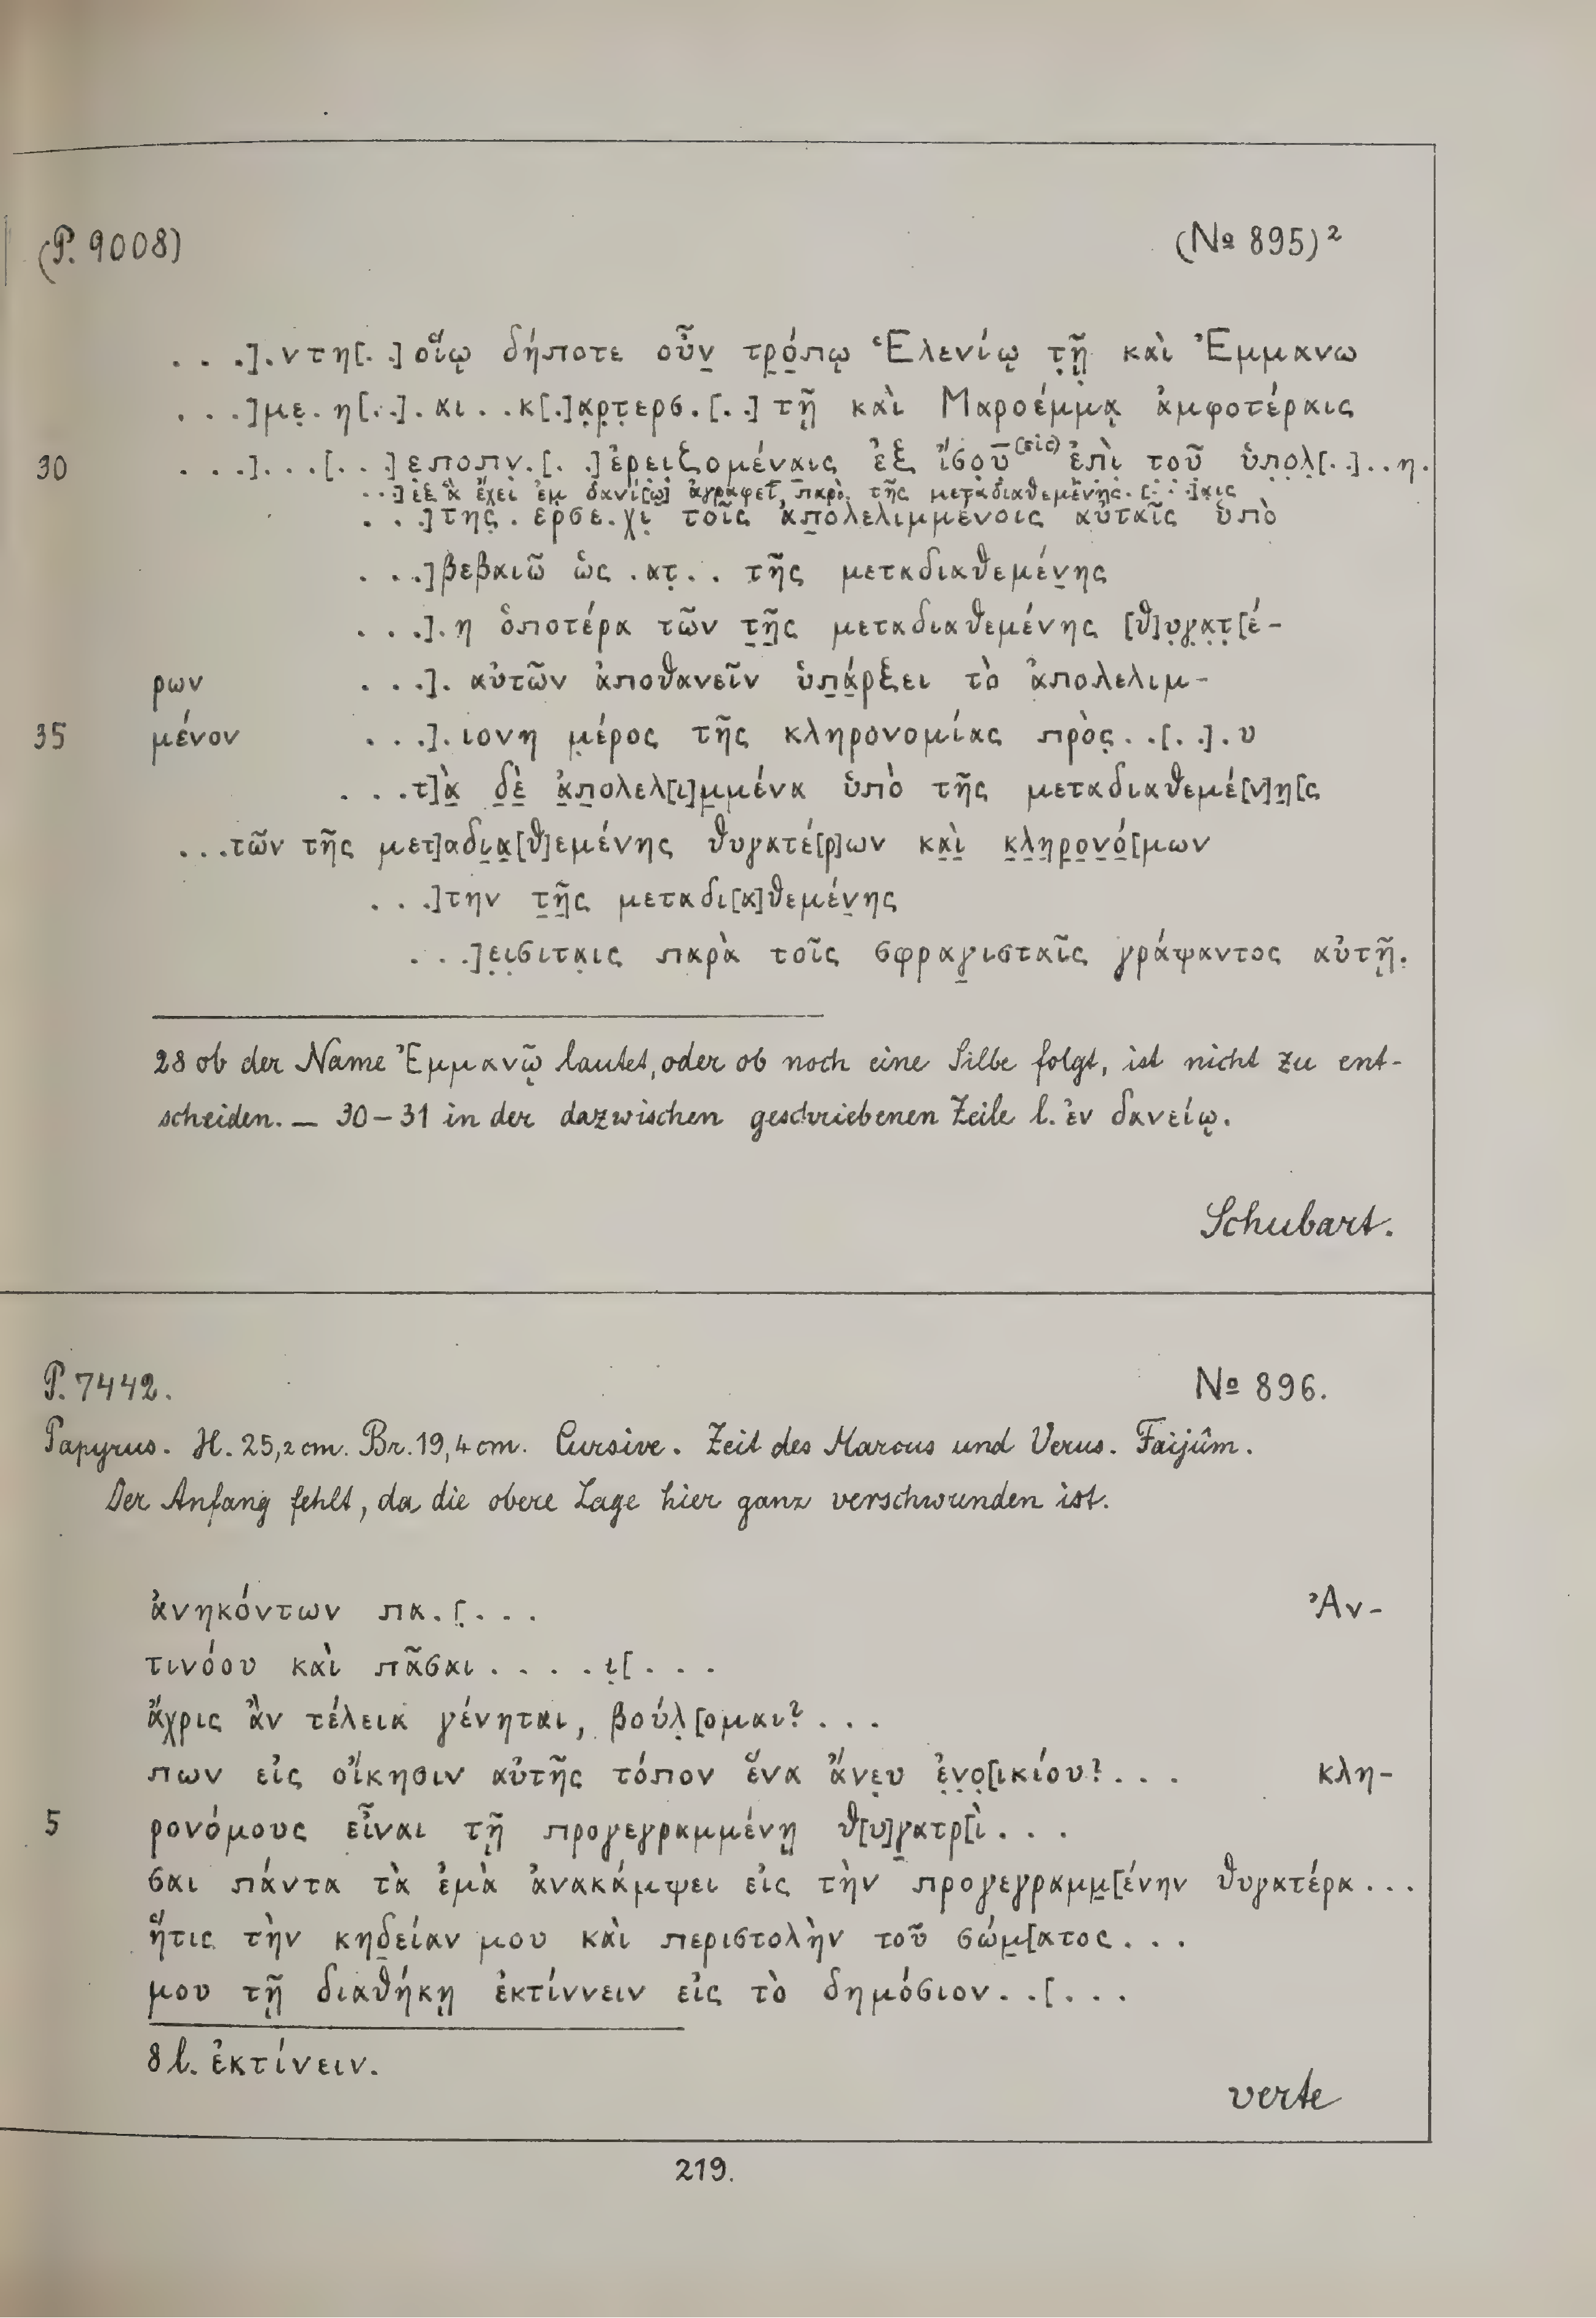 (P. 9008) (No 895)²
. . .].ντη[. .] οἵῳ δήποτε οὖν τρόπῳ Ἑλενίῳ τῇ καὶ Ἐμμανω
. . .]με. η[. .]. αι. . κ[.]αρτερσ.[. .] τῇ καὶ Μαροέμμᾳ ἀμφοτέραις
30 . . .]. . .[. . .]εποπν.[. .]ἐρειζομέναις ἐξ ἴσοῦ (sic) ἐπὶ τοῦ ὑπολ[. .]. . η.
. . .]εἰξ ἃ ἔχει ἐμ δανί[ῳ] ἀγραφεῖ παρὰ τῆς μεταδιαθεμένης. [. . .]αις
. . .]της. ερσε.χι τοῖς ἀπολελιμμένοις αὐταῖς ὑπὸ
. . .]βεβαιῶ ὡς .ατ. . τῆς μεταδιαθεμένης
. . .].η ὁποτέρα τῶν τῆς μεταδιαθεμένης [θ]υγατ[έ-
ρων . . .]. αὐτῶν ἀποθανεῖν ὑπάρξει τὸ ἀπολελιμ-
35 μένον . . .].ιονη μέρος τῆς κληρονομίας πρὸς. .[. .].υ
. . .τ]ὰ δὲ ἀπολελ[ι]μμένα ὑπὸ τῆς μεταδιαθεμέ[ν]η[ς
. . .τῶν τῆς μετ]αδια[θ]εμένης θυγατέ[ρ]ων καὶ κληρονό[μων
. . .]την τῆς μεταδι[α]θεμένης
. . .]εισιταις παρὰ τοῖς σφραγισταῖς γράψαντος αὐτῇ.
28 ob der Name Ἐμμανῷ lautet, oder ob noch eine Silbe folgt, ist nicht zu ent-
scheiden. — 30–31 in der dazwischen geschriebenen Zeile l. ἐν δανείῳ.
Schubart.
P. 7442. No 896.
Papyrus. H. 25,2 cm. Br. 19,4 cm. Cursive. Zeit des Marcus und Verus. Faijûm.
Der Anfang fehlt, da die obere Lage hier ganz verschwunden ist.
ἀνηκόντων πα.[. . . Ἀν-
τινόου καὶ πᾶσαι . . . . ι[. . .
ἄχρις ἂν τέλεια γένηται, βούλ[ομαι? . . .
πων εἰς οἴκησιν αὐτῆς τόπον ἕνα ἄνευ ἐνο[ικίου? . . . κλη-
5 ρονόμους εἶναι τῇ προγεγραμμένῃ θ[υ]γατρ[ὶ . . .
σαι πάντα τὰ ἐμὰ ἀνακάμψει εἰς τὴν προγεγραμμ[ένην θυγατέρα . . .
ἥτις τὴν κηδείαν μου καὶ περιστολὴν τοῦ σώμ[ατος . . .
μου τῇ διαθήκῃ ἐκτίννειν εἰς τὸ δημόσιον. .[. . .
8 l. ἐκτίνειν.
verte
219.